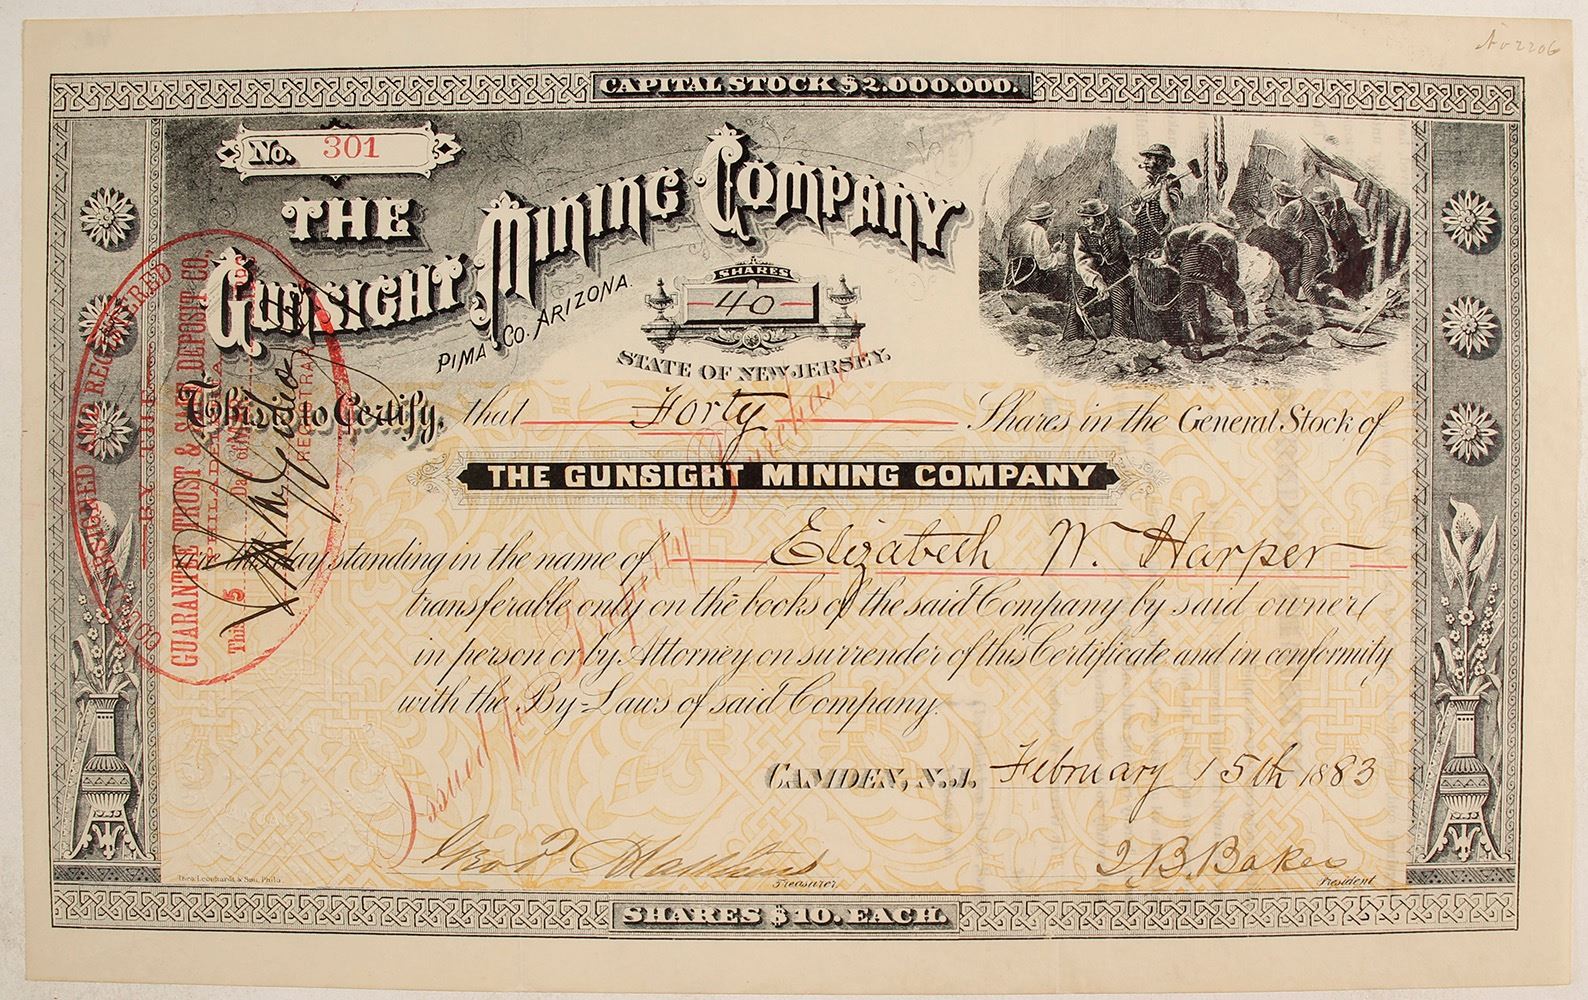 No 2206
CAPITAL STOCK $2.000.000.
No. 301
THE
GUNSIGHT MINING COMPANY
PIMA CO. ARIZONA.
SHARES
40
STATE OF NEW JERSEY.
This is to Certify, that Forty Shares in the General Stock of
THE GUNSIGHT MINING COMPANY
is this day standing in the name of Elizabeth W. Harper
transferable only on the books of the said Company by said owner
in person or by Attorney on surrender of this Certificate and in conformity
with the By-Laws of said Company.
CAMDEN, N.J. February 15th 1883
Treasurer,
J. B. Baker
President
Theo. Leonhardt & Son, Phila.
SHARES $10. EACH.
COUNTERSIGNED AND REGISTERED
BY THE
GUARANTEE TRUST & SAFE DEPOSIT CO.,
PHILADELPHIA
This 5 Day of
REGISTRAR
Issued for Property Purchased